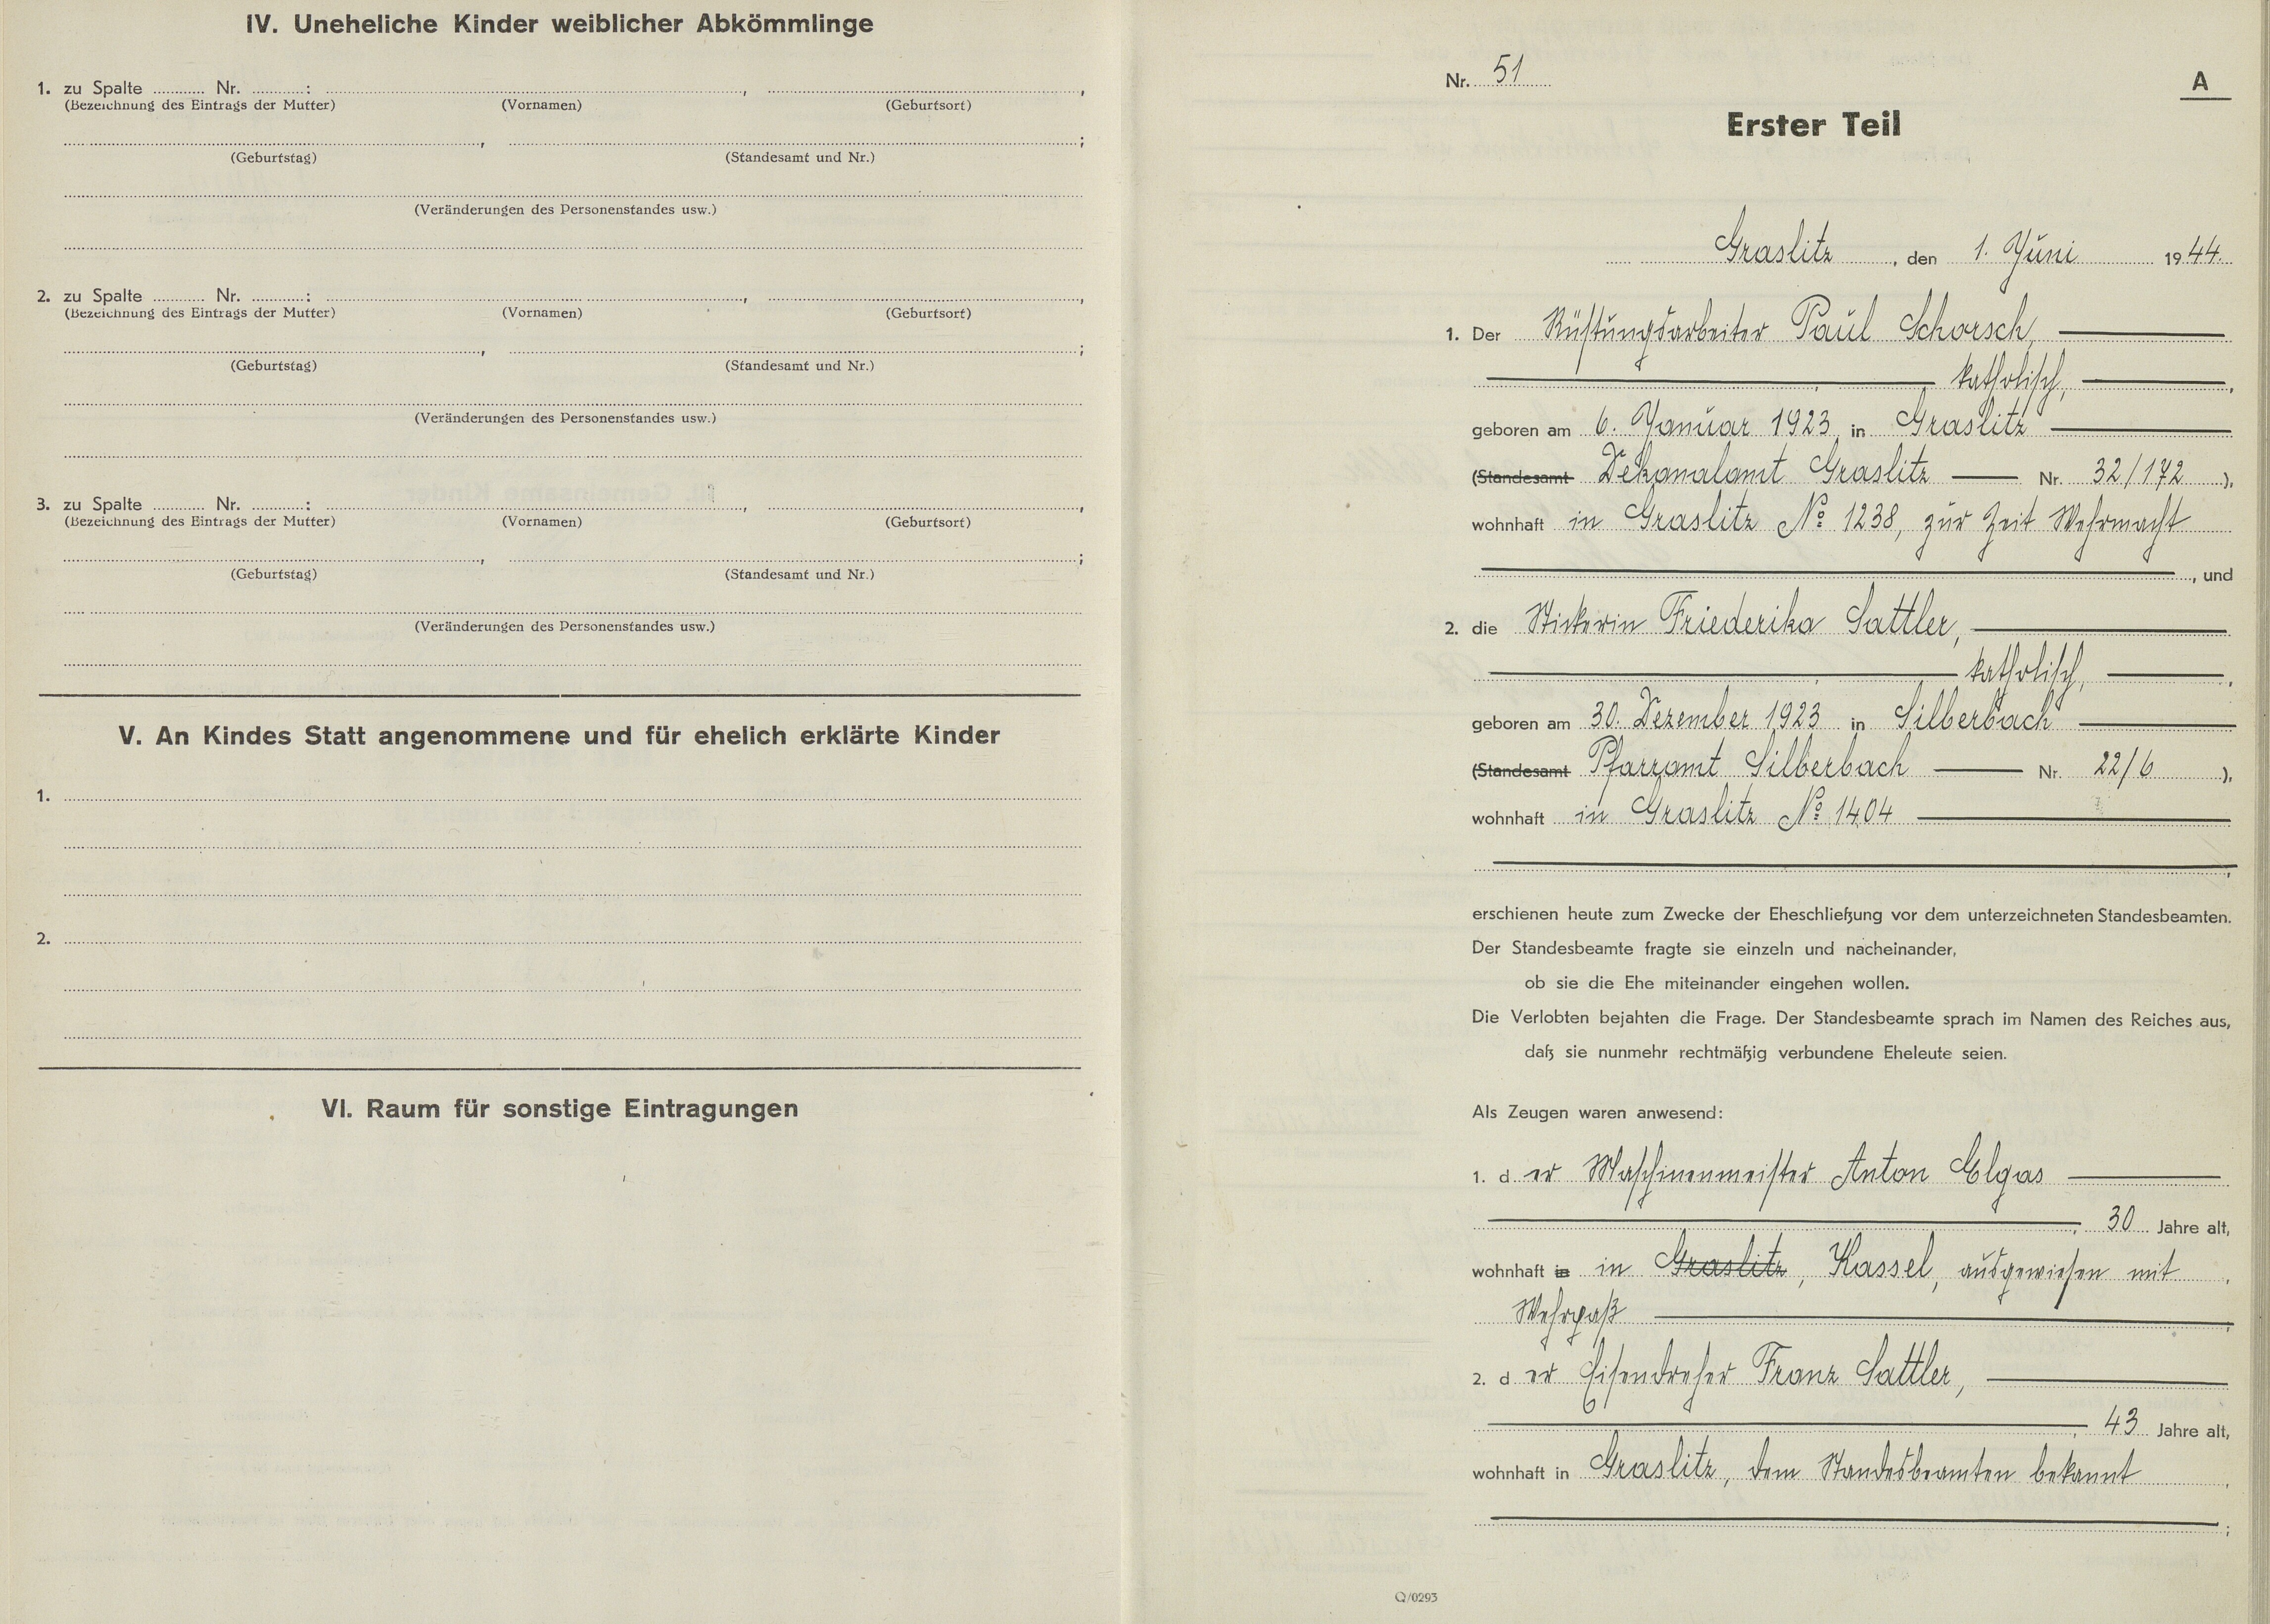 IV. Uneheliche Kinder weiblicher Abkömmlinge
1. zu Spalte ........... Nr. ...........: , ,
(Bezeichnung des Eintrags der Mutter) (Vornamen) (Geburtsort)
, ;
(Geburtstag) (Standesamt und Nr.)
(Veränderungen des Personenstandes usw.)
2. zu Spalte ........... Nr. ...........: , ,
(Bezeichnung des Eintrags der Mutter) (Vornamen) (Geburtsort)
, ;
(Geburtstag) (Standesamt und Nr.)
(Veränderungen des Personenstandes usw.)
3. zu Spalte ........... Nr. ...........: , ,
(Bezeichnung des Eintrags der Mutter) (Vornamen) (Geburtsort)
, ;
(Geburtstag) (Standesamt und Nr.)
(Veränderungen des Personenstandes usw.)
V. An Kindes Statt angenommene und für ehelich erklärte Kinder
1.
2.
VI. Raum für sonstige Eintragungen
Nr. 51
A
Erster Teil
Graslitz, den 1. Juni 1944.
1. Der Rüstungsarbeiter Paul Schorsch,
katholisch,
geboren am 6. Januar 1923 in Graslitz
(Standesamt Dekanalamt Graslitz Nr. 32/172),
wohnhaft in Graslitz No 1238, zur Zeit Wehrmacht
, und
2. die Stickerin Friederika Sattler,
katholisch,
geboren am 30. Dezember 1923 in Silberbach
(Standesamt Pfarramt Silberbach Nr. 22/6),
wohnhaft in Graslitz No 1404
erschienen heute zum Zwecke der Eheschließung vor dem unterzeichneten Standesbeamten.
Der Standesbeamte fragte sie einzeln und nacheinander,
ob sie die Ehe miteinander eingehen wollen.
Die Verlobten bejahten die Frage. Der Standesbeamte sprach im Namen des Reiches aus,
daß sie nunmehr rechtmäßig verbundene Eheleute seien.
Als Zeugen waren anwesend:
1. der Maschinenmeister Anton Elgas
, 30 Jahre alt,
wohnhaft in in Graslitz, Kassel, ausgewiesen mit
Wehrpaß
2. der Eisendreher Franz Sattler,
, 43 Jahre alt,
wohnhaft in Graslitz, dem Standesbeamten bekannt
;
Q/0293